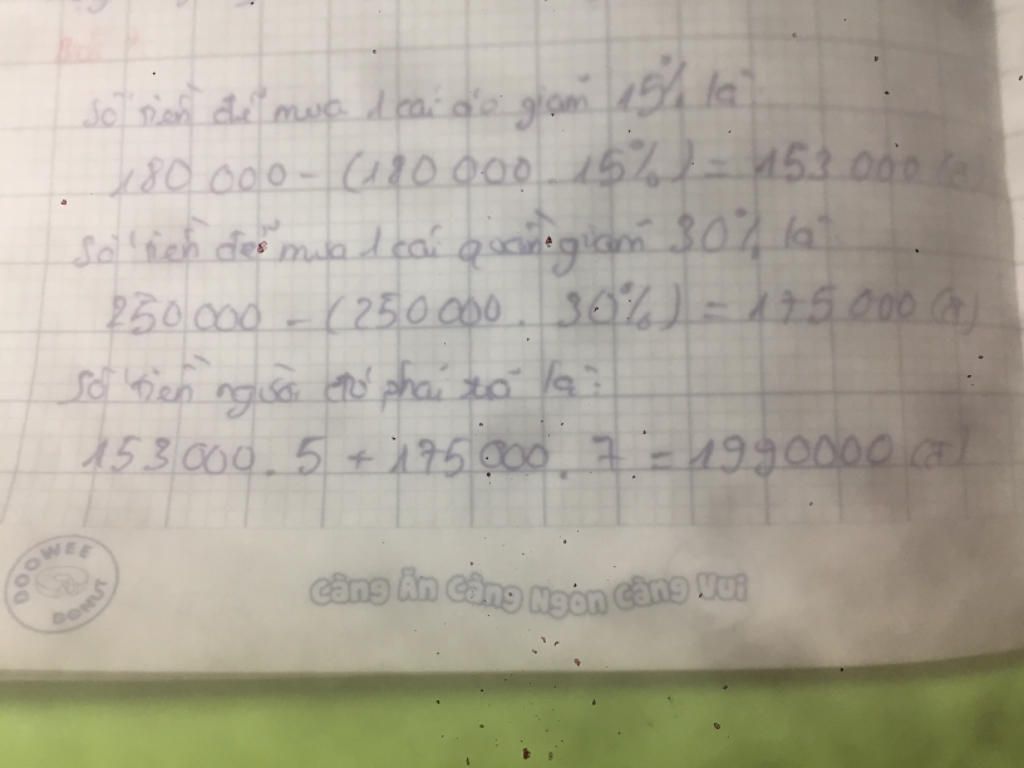 Số tiền để mua 1 cái áo giảm 15% là:
180 000 - (180 000 . 15%) = 153 000 (đ)
Số tiền để mua 1 cái quần giảm 30% là:
250 000 - (250 000 . 30%) = 175 000 (đ)
Số tiền người đó phải trả là:
153 000 . 5 + 175 000 . 7 = 1990000 (đ)
DOOWEE DONUT
Càng Ăn Càng Ngon Càng Vui